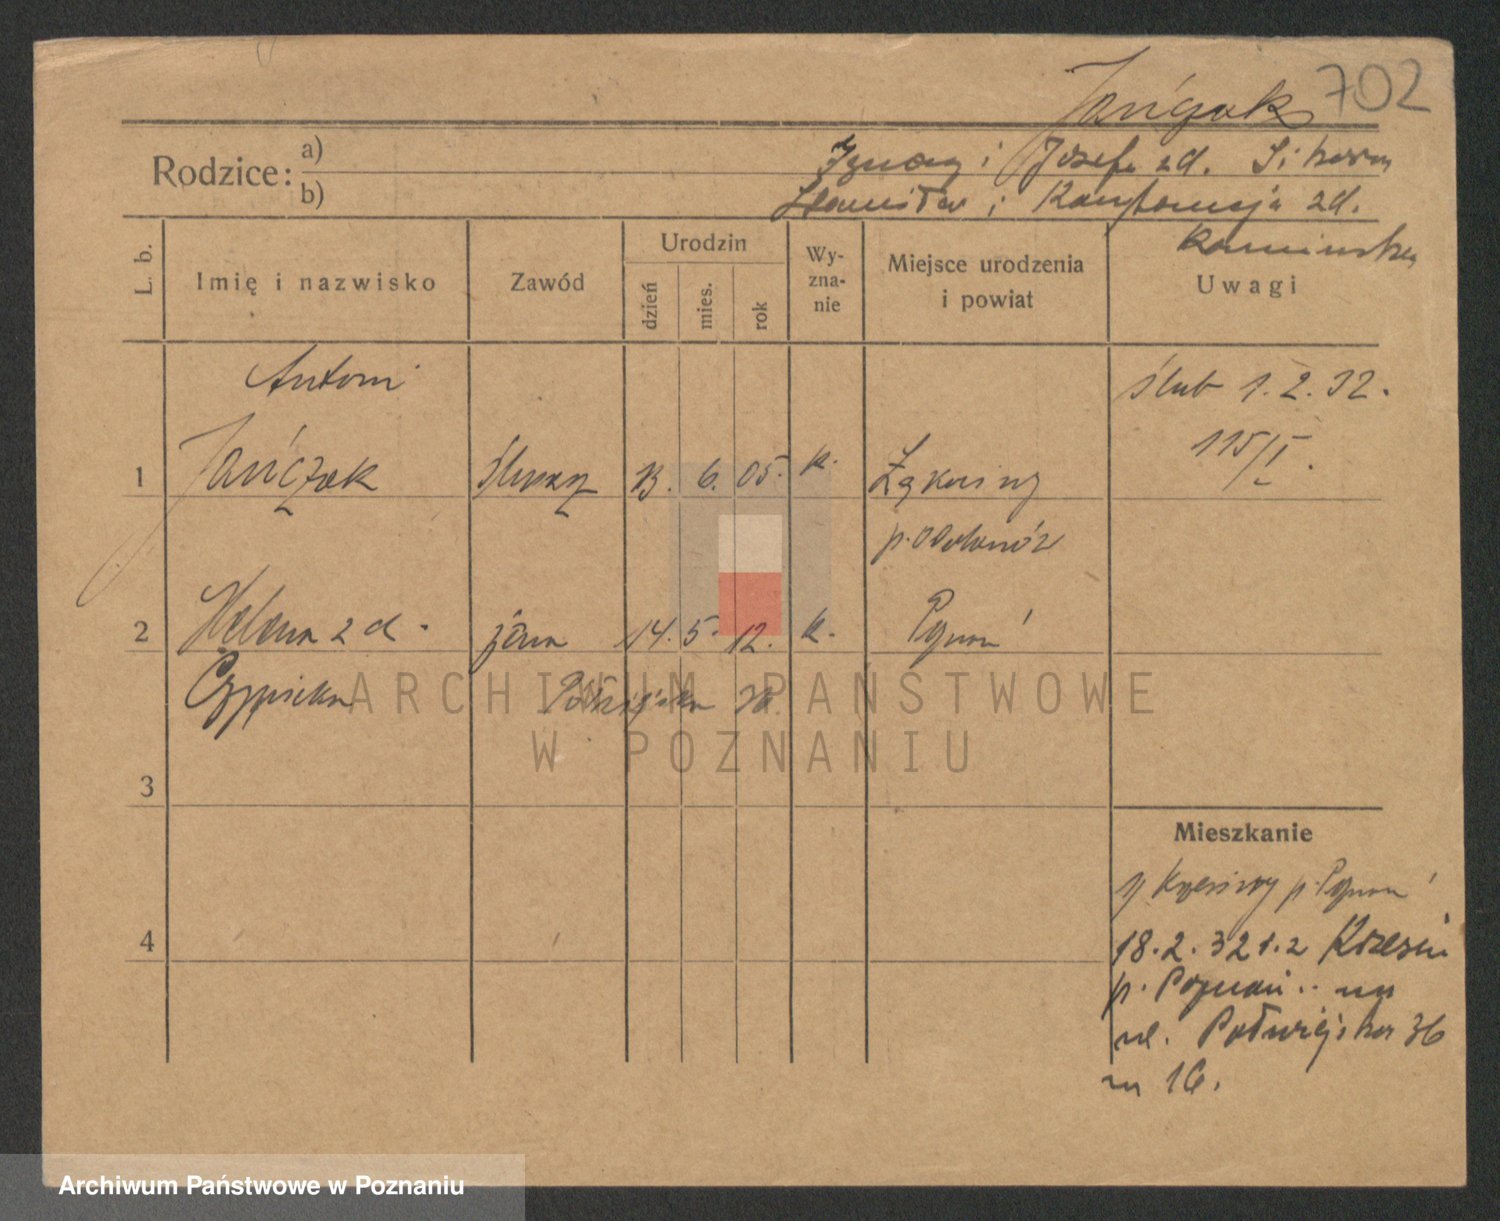 Jańczak 702
Rodzice: a) Ignacy i Józefa zd. Sikora
b) Stanisław i zd.
Kamińska
L. b.
Imię i nazwisko
Zawód
Urodzin
dzień
mies.
rok
Wy-
zna-
nie
Miejsce urodzenia
i powiat
Uwagi
Antoni
ślub 1.2.32.
115/I.
1 Jańczak ślusarz 13. 6. 05. k.
p. Odolanów
2 Helena zd. żona 14. 5. 12. k. Poznań
3
Mieszkanie
p. Poznań
4
18.2.32 Krzesin
p. Poznań na
ul. Południowa 36
m 16.
ARCHIWUM PAŃSTWOWE
W POZNANIU
Archiwum Państwowe w Poznaniu